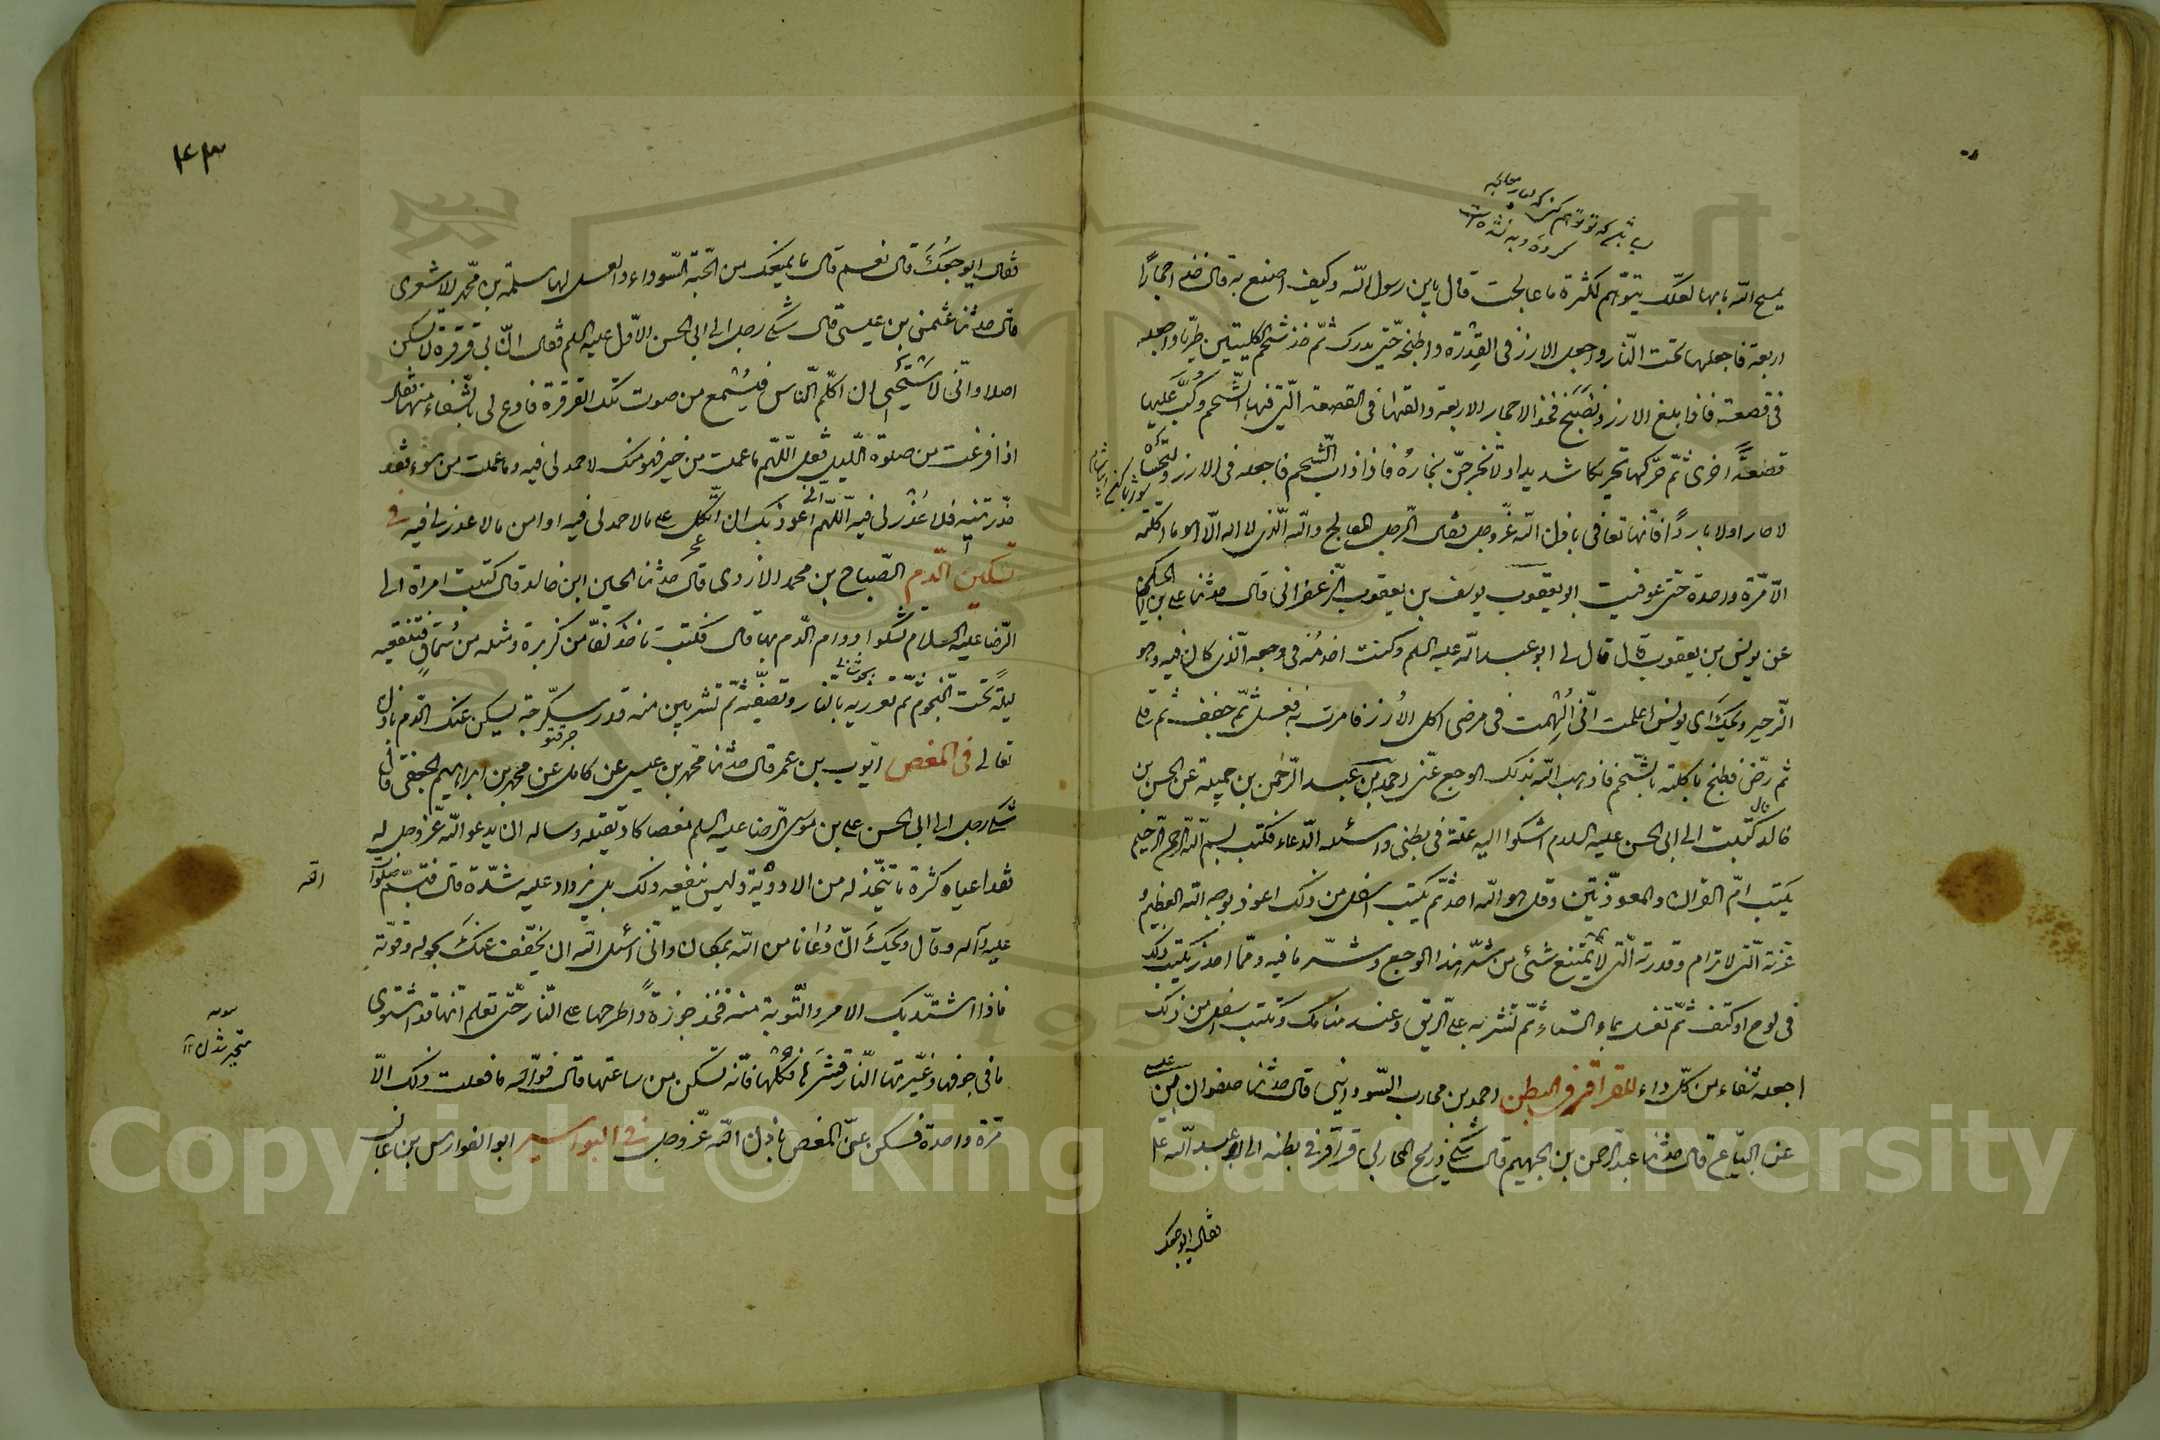 يمسح الله ما بها لعلك تتوهم لكثرة ما عالجت قال يا بن رسول الله وكيف اصنع به قال خذ احجارًا
اربعة فاجعلها تحت النار واجعل الارز في القدرة واطبخه حتى يدرك ثم خذ شحم الكليتين طريا واجعله
في قصعة فاذا بلغ الارز ونضج فخذ الاحجار الاربعة والقها في القصعة التي فيها الشحم وكب عليها
قصعة اخرى ثم حركها تحريكا شديدا ولا تخرجن بخاره فاذا ذاب الشحم فاجعله في الارز وتحساه
لا حارا ولا باردًا فانها تعافى باذن الله عز وجل فقال الرجل المعالج والله الذي لا اله الا هو ما اكلته
الا مرة واحدة حتى عوفيت ابو يعقوب يوسف بن يعقوب الزعفراني قال حدثنا علي بن الحكم
عن يونس بن يعقوب قال قال لي ابو عبد الله عليه السلم وكنت اخدمه في وجعه الذي كان فيه وهو
الزحير ويحك اى يونس اعلمت انى الهمت في مرضى اكل الارز فامرت به فغسل ثم جفف ثم قلى
ثم رض فطبخ فاكلته بالشحم فاذهب الله بذلك الوجع عنى احمد بن عبد الرحمن بن جميلة عن الحسن بن
خالد قال كتبت الى ابى الحسن عليه السلام اشكوا اليه علة في بطنى واسئله الدعاء فكتب بسم الله الرحمن الرحيم
يكتب ام القران والمعوذتين وقل هو الله احد ثم يكتب اسفل من ذلك اعوذ بوجه الله العظيم و
عزته التى لا ترام وقدرته التى لا يمتنع منها شئ من شر هذا الوجع وشر ما فيه ومما احذر يكتب ذلك
في لوح او كتف ثم تغسله بماء السماء ثم تشربه على الريق وعند منامك وتكتب اسفل من ذلك
اجعله شفاء من كل داء للقراقر في البطن احمد بن محارب السودانى قال حدثنا صفوان بن عيسى
عن البياع قال حدثنا عبد الرحمن بن الجهيم قال شكى ذريح المحاربى قراقر في بطنه الى ابو عبد الله عليه
فقال ايوجعك
٤٣
فقال ايوجعك قال نعم قال ما يمنعك من الحبة السوداء والعسل لها سلمة بن محمد الاشعرى
قال حدثنا عثمن بن عيسى قال شكى رجل الى ابى الحسن الاول عليه السلم فقال ان بى قرقرة لا تسكن
اصلا وانى لاستحيى ان اكلم الناس فيسمع من صوت تلك القرقرة فادع لى بالشفاء منها فقال
اذا فرغت من صلوة الليل فقل اللهم ما عملت من خير فهو منك لا حمد لى فيه وما عملت من سوء فقد
حذرتنيه فلا عذر لى فيه اللهم انى اعوذ بك ان اتكل على ما لا حمد لى فيه او امن ما لا عذر لى فيه في
تسكين الدم الصباح بن محمد الازدى قال حدثنا الحسين ابن خالد قال كتبت امراة الى
الرضا عليه السلام تشكوا دوام الدم بها قال فكتب تاخذ كفا من كزبرة ومثله من سماق فتنقعيه
ليلة تحت النجوم ثم تغربيه بالنار وتصفيه ثم تشربين منه قدر سكرجة يسكن عنك الدم باذن الله
تعالى في المغص ايوب بن عمر قال حدثنا محمد بن عيسى عن كامل عن محمد بن ابراهيم الجعفى قال
شكى رجل الى ابى الحسن على بن موسى الرضا عليه السلم مغصا كاد يقتله وساله ان يدعو الله عز وجل له
فقد اعياه كثرة ما يتخذ له من الادوية وليس ينفعه ذلك بل يزداد عليه شدة قال فتبسم صلوات
الله
عليه وآله وقال ويحك ان دعانا من الله بمكان وانى اسئل الله ان يخفف عنك بحوله وقوته
فاذا اشتد بك الامر والتوبة منه فخذ جوزة واطرحها على النار حتى تعلم انها قد اشتوى
ما في جوفها وغيرتها النار قشرها فكلها فانه تسكن من ساعتها قال فوالله ما فعلت ذلك الا
مرة واحدة فسكن عنى المغص باذن الله عز وجل في البواسير ابو الفوارس بن غالب
Copyright © King Saud University